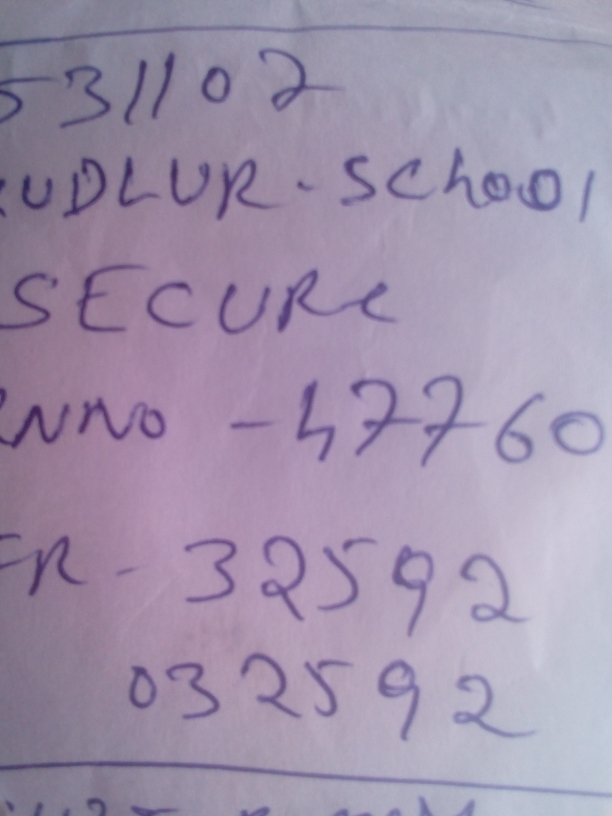 531102
UDLUR - School
SECURe
NNO - 47760
R - 32592
032592